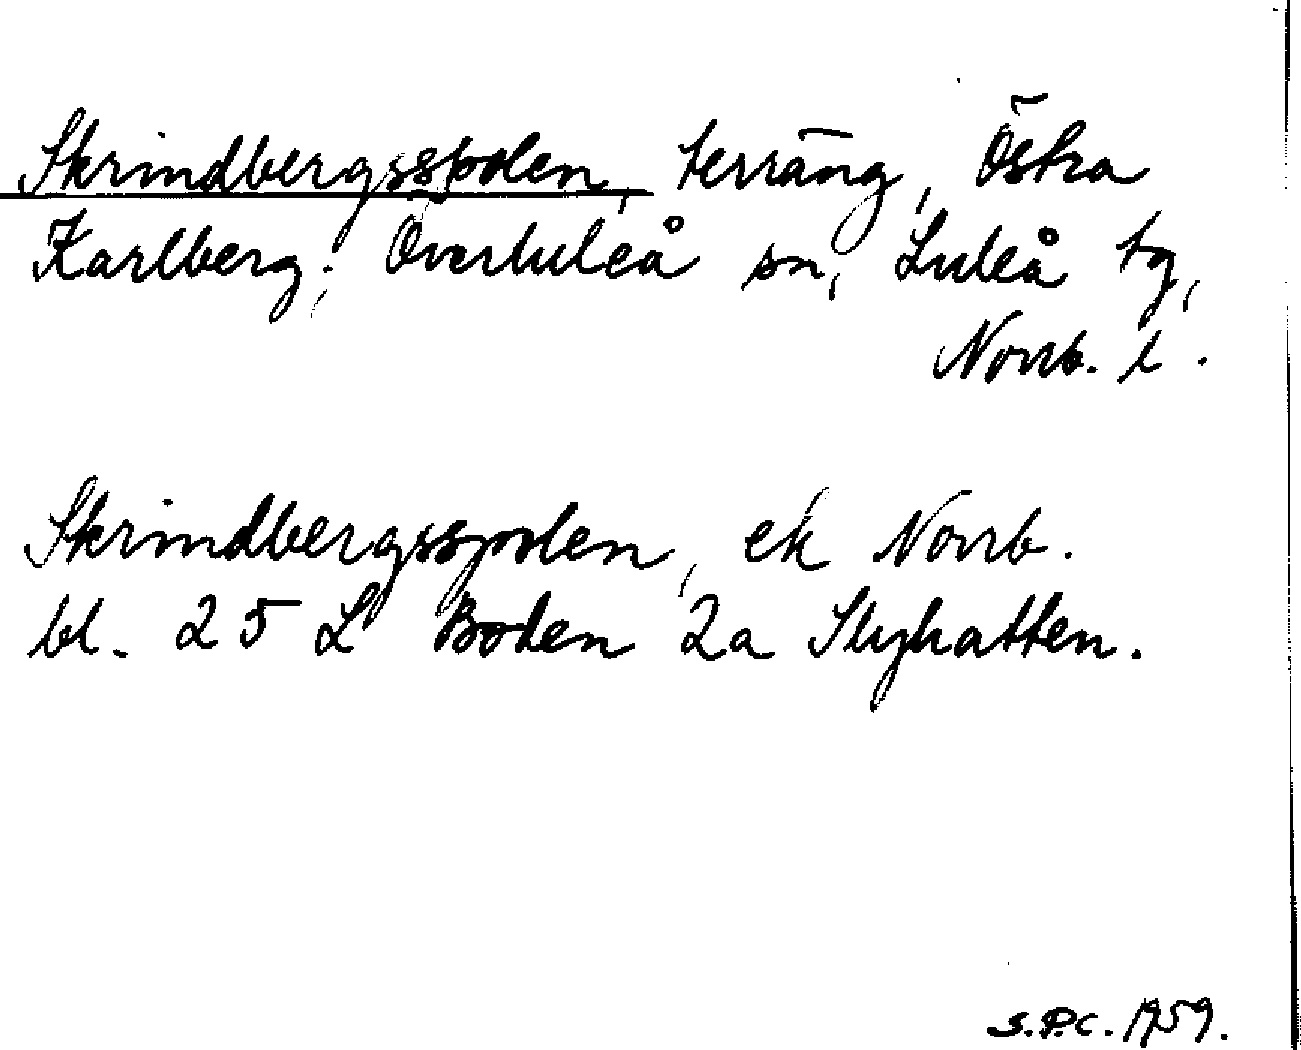 Skrindbergsspolen, terräng, Östra
Karlberg, Överluleå sn, Luleå tg,
Norrb. l.
Skrindbergsspolen, ek Norrb.
bl. 25 L Boden 2a Slyhatten.
S.P.C. 1959.